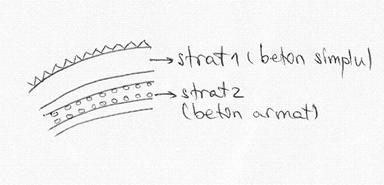 strat1 (beton simplu)
strat2
(beton armat)